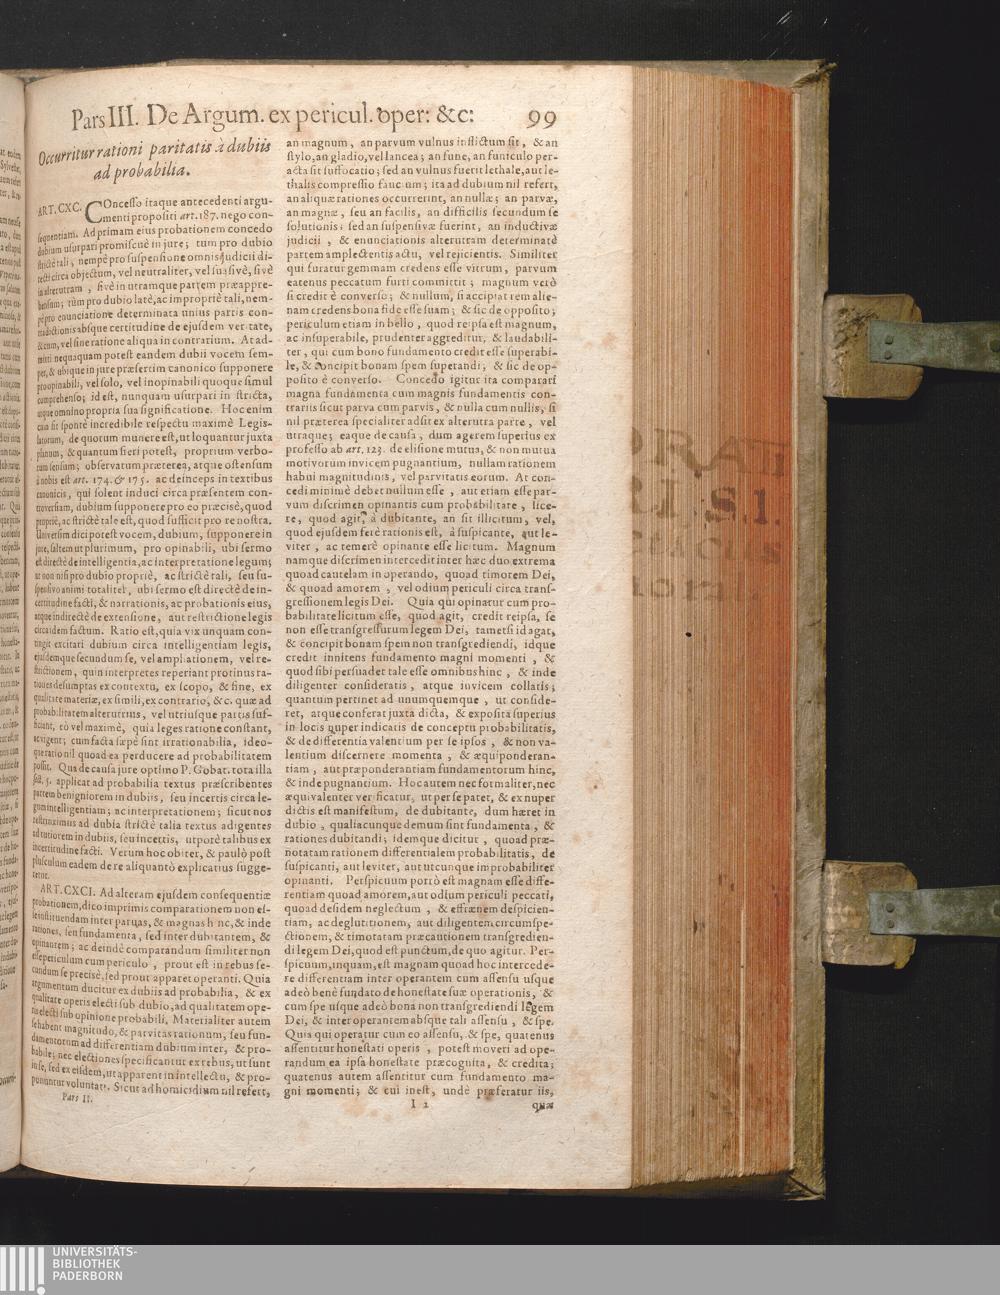 Pars III. De Argum. ex pericul. oper: &c: 99
Occurritur rationi paritatis à dubiis
ad probabilia.
ART. CXC. COncesso itaque antecedenti argu-
menti propositi art. 187. nego con-
sequentiam. Ad primam eius probationem concedo
dubium usurpari promiscuè in jure; tum pro dubio
strictè tali, nempè pro suspensione omnis judicii di-
recti circa objectum, vel neutraliter, vel suasivè, sivè
in alterutram, sivè in utramque partem præappre-
hensum; tùm pro dubio latè, ac impropriè tali, nem-
pè pro enunciatione determinata unius partis con-
tradictionis absque certitudine de ejusdem veritate,
& cum, vel sine ratione aliqua in contrarium. At ad-
mitti nequaquam potest eandem dubii vocem sem-
per, & ubique in jure præsertim canonico supponere
pro opinabili, vel solo, vel inopinabili quoque simul
comprehenso; id est, nunquam usurpari in stricta,
atque omnino propria sua significatione. Hoc enim
cùm sit spontè incredibile respectu maximè Legis-
latorum, de quorum munere est, ut loquantur juxta
planum, & quantum fieri potest, proprium verbo-
rum sensum; observatum præterea, atque ostensum
à nobis est art. 174. & 175. ac deinceps in textibus
canonicis, qui solent induci circa præsentem con-
troversiam, dubium supponere pro eo præcisè, quod
propriè, ac strictè tale est, quod sufficit pro re nostra.
Universim dici potest vocem, dubium, supponere in
jure, saltem ut plurimum, pro opinabili, ubi sermo
est directè de intelligentia, ac interpretatione legum;
ut non nisi pro dubio propriè, ac strictè tali, seu su-
spensivo animi totaliter, ubi sermo est directè de in-
certitudine facti, & narrationis, ac probationis eius,
atque indirectè de extensione, aut restrictione legis
circa idem factum. Ratio est, quia vix unquam con-
tingit excitari dubium circa intelligentiam legis,
ejusdemque secundum se, vel ampliationem, vel re-
strictionem, quin interpretes reperiant protinus ra-
tiones desumptas ex contextu, ex scopo, & fine, ex
qualitate materiæ, ex simili, ex contrario, & c. quæ ad
probabilitatem alterutrius, vel utriusque partis suf-
ficiant, eò vel maximè, quia leges ratione constant,
ac vigent; cum facta sæpè sint irrationabilia, ideo-
que ratio nil quoad ea perducere ad probabilitatem
possit. Qua de causa jure optimo P. Gobat. tota illa
sect. 5. applicat ad probabilia textus præscribentes
partem benigniorem in dubiis, seu incertis circa le-
gum intelligentiam; ac interpretationem; sicut nos
restrinximus ad dubia strictè talia textus adigentes
ad tutiorem in dubiis, seu incertis, utporè talibus ex
incertitudine facti. Verum hoc obiter, & paulò post
plusculum eadem de re aliquantò explicatius sugge-
retur.
ART. CXCI. Ad alteram ejusdem consequentiæ
probationem, dico imprimis comparationem non es-
se instituendam inter parvas, & magnas hinc, & inde
rationes, seu fundamenta, sed inter dubitantem, &
opinantem; ac deindè comparandum similiter non
esse periculum cum periculo, prout est in rebus se-
cundum se precisè, sed prout apparet operanti. Quia
argumentum ducitur ex dubiis ad probabilia, & ex
qualitate operis electi sub dubio, ad qualitatem ope-
ris electi sub opinione probabili. Materialiter autem
se habent magnitudo, & parvitas rationum, seu fun-
damentorum ad differentiam dubium inter, & pro-
babile; nec electiones specificantur ex rebus, ut sunt
in se, sed ex eisdem, ut apparent in intellectu, & pro-
ponuntur voluntati. Sicut ad homicidium nil refert,
Pars II.
an magnum, an parvum vulnus inflictum sit, & an
stylo, an gladio, vel lancea; an fune, an funiculo per-
acta sit suffocatio; sed an vulnus fuerit lethale, aut le-
thalis compressio faucium; ita ad dubium nil refert,
an aliquæ rationes occurrerint, an nullæ; an parvæ,
an magnæ, seu an facilis, an difficilis secundum se
solutionis; sed an suspensivæ fuerint, an inductivæ
judicii, & enunciationis alterutram determinatè
partem amplectentis actu, vel rejicientis. Similiter
qui furatur gemmam credens esse vitrum, parvum
eatenus peccatum furti committit; magnum verò
si credit è converso; & nullum, si accipiat rem alie-
nam credens bona fide esse suam; & sic de opposito;
periculum etiam in bello, quod reipsa est magnum,
ac insuperabile, prudenter aggreditur, & laudabili-
ter, qui cum bono fundamento credit esse superabi-
le, & concipit bonam spem superandi; & sic de op-
posito è converso. Concedo igitur ita comparari
magna fundamenta cum magnis fundamentis con-
trariis sicut parva cum parvis, & nulla cum nullis, si
nil præterea specialiter adsit ex alterutra parte, vel
utraque; eaque de causa, dum agerem superius ex
professo ab art. 123. de elisione mutua, & non mutua
motivorum invicem pugnantium, nullam rationem
habui magnitudinis, vel parvitatis eorum. At con-
cedi minimè debet nullum esse, aut etiam esse par-
vum discrimen opinantis cum probabilitate, lice-
re, quod agit, à dubitante, an sit illicitum, vel,
quod ejusdem ferè rationis est, à suspicante, aut le-
viter, ac temerè opinante esse licitum. Magnum
namque discrimen intercedit inter hæc duo extrema
quoad cautelam in operando, quoad timorem Dei,
& quoad amorem, vel odium periculi circa trans-
gressionem legis Dei. Quia qui opinatur cum pro-
babilitate licitum esse, quod agit, credit reipsa, se
non esse transgressurum legem Dei, tametsi id agat,
& concipit bonam spem non transgrediendi, idque
credit innitens fundamento magni momenti, &
quod sibi persuadet tale esse omnibus hinc, & inde
diligenter consideratis, atque invicem collatis;
quantum pertinet ad unumquemque, ut conside-
ret, atque conferat juxta dicta, & exposita superius
in locis nuper indicatis de conceptu probabilitatis,
& de differentia valentium per se ipsos, & non va-
lentium discernere momenta, & æquiponderan-
tiam, aut præponderantiam fundamentorum hinc,
& inde pugnantium. Hoc autem nec formaliter, nec
æquivalenter verificatur, ut per se patet, & ex nuper
dictis est manifestum, de dubitante, dum hæret in
dubio, qualiacunque demum sint fundamenta, &
rationes dubitandi; idemque dicitur, quoad præ-
notatam rationem differentialem probabilitatis, de
suspicanti, aut leviter, aut utcunque improbabiliter
opinanti. Perspicuum porrò est magnam esse diffe-
rentiam quoad amorem, aut odium periculi peccati,
quoad desidem neglectum, & effrænem despicien-
tiam, ac deglutitionem, aut diligentem circumspe-
ctionem, & timoratam præcautionem transgredien-
di legem Dei, quod est punctum, de quo agitur. Per-
spicuum, inquam, est magnam quoad hoc intercede-
re differentiam inter operantem cum assensu usque
adeò benè fundato de honestate suæ operationis, &
cum spe usque adeò bona non transgrediendi legem
Dei, & inter operantem absque tali assensu, & spe.
Quia qui operatur cum eo assensu, & spe, quatenus
assentitur honestati operis, potest moveri ad ope-
randum ea ipsa honestate præcognita, & credita;
quatenus autem assentitur cum fundamento ma-
gni momenti; & cui inest, undè præferatur iis,
I 2 quæ
UNIVERSITÄTS-
BIBLIOTHEK
PADERBORN